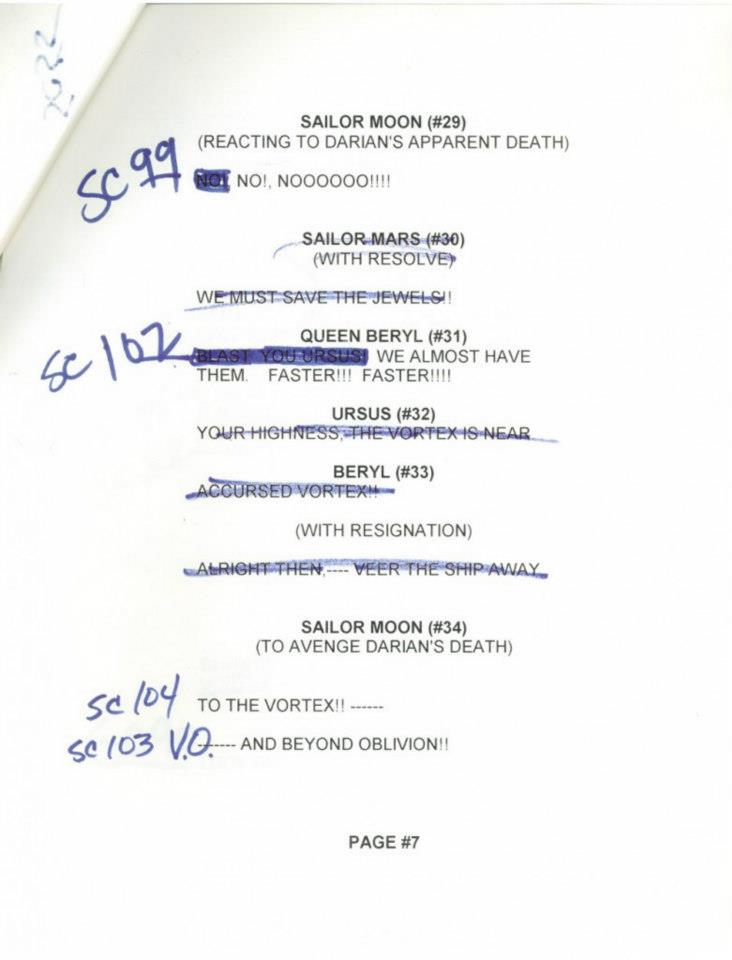 2022
SAILOR MOON (#29)
(REACTING TO DARIAN'S APPARENT DEATH)
SC 99 NO!, NO!, NOOOOOO!!!!
SAILOR MARS (#30)
(WITH RESOLVE)
WE MUST SAVE THE JEWELS!!
QUEEN BERYL (#31)
SC 102 BLAST YOU URSUS! WE ALMOST HAVE
THEM. FASTER!!! FASTER!!!!
URSUS (#32)
YOUR HIGHNESS, THE VORTEX IS NEAR
BERYL (#33)
ACCURSED VORTEX!!
(WITH RESIGNATION)
ALRIGHT THEN,---- VEER THE SHIP AWAY
SAILOR MOON (#34)
(TO AVENGE DARIAN'S DEATH)
SC 104 TO THE VORTEX!! ------
SC 103 V.O. ------- AND BEYOND OBLIVION!!
PAGE #7